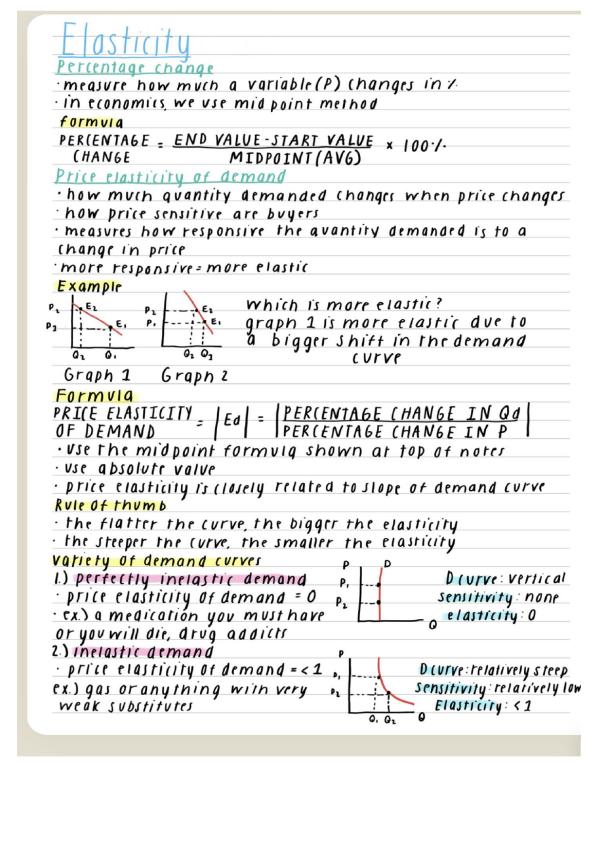 Elasticity
Percentage change
· measure how much a variable (P) changes in %
· in economics, we use mid point method
formula
PERCENTAGE CHANGE = END VALUE - START VALUE / MIDPOINT (AVG) × 100%
Price elasticity of demand
· how much quantity demanded changes when price changes
· how price sensitive are buyers
· measures how responsive the quantity demanded is to a
change in price
· more responsive = more elastic
Example
P₂ E₂
P₂ E₁
Q₂ Q₁
Graph 1
P₂ E₂
P₁ E₁
Q₂ Q₂
Graph 2
Which is more elastic?
graph 1 is more elastic due to
a bigger shift in the demand
curve
Formula
PRICE ELASTICITY OF DEMAND = |Ed| = |PERCENTAGE CHANGE IN Qd / PERCENTAGE CHANGE IN P|
· use the midpoint formula shown at top of notes
· use absolute value
· price elasticity is closely related to slope of demand curve
Rule of thumb
· the flatter the curve, the bigger the elasticity
· the steeper the curve, the smaller the elasticity
Variety of demand curves
1.) perfectly inelastic demand
· price elasticity of demand = 0
· ex.) a medication you must have
or you will die, drug addicts
P D
P₁
P₂
Q
D curve: vertical
sensitivity: none
elasticity: 0
2.) inelastic demand
· price elasticity of demand = <1
ex.) gas or anything with very
weak substitutes
P
P₁
P₂
Q₁ Q₂ Q
D curve: relatively steep
Sensitivity: relatively low
Elasticity: <1